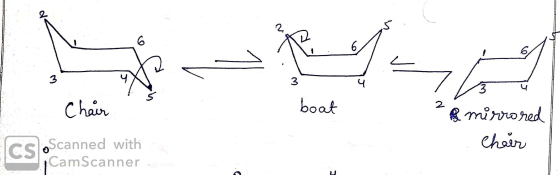 2 1 6 3 4 5
2 1 6 5 3 4
1 6 5 2 3 4
Chair
boat
mirrored
chair
CS Scanned with
CamScanner